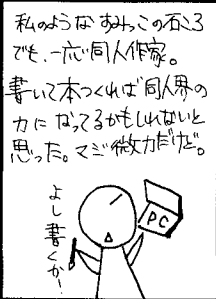 私のようなすみっこの石ころ
でも、一応同人作家。
書いて本つくれば同人界の
力になってるかもしれないと
思った。マジ微力だけど。
よし書くか!
PC